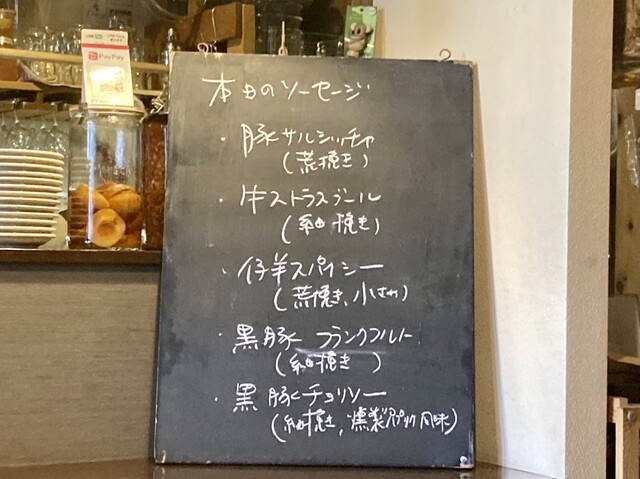 PayPay
本日のソーセージ
・豚サルシッチャ
(荒挽き)
・牛ストラスブール
(細挽き)
・仔羊スパイシー
(荒挽き、小さめ)
・黒豚 フランクフルト
(細挽き)
・黒豚チョリソー
(細挽き、燻製パプリカ風味)